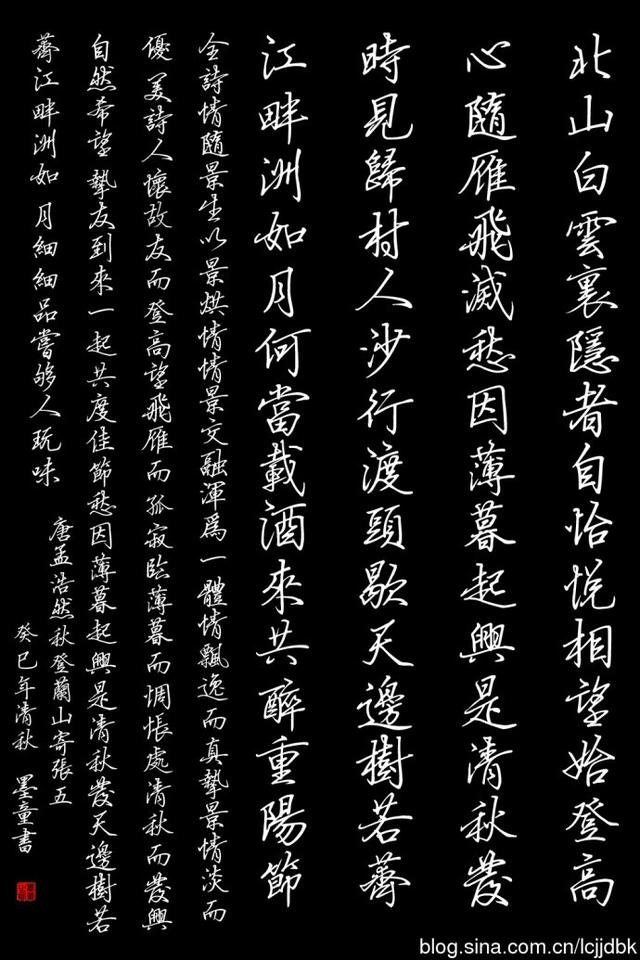 北山白雲裏隱者自怡悅相望始登高
心隨雁飛滅愁因薄暮起興是清秋發
時見歸村人沙行渡頭歇天邊樹若薺
江畔洲如月何當載酒來共醉重陽節
全詩情隨景生以景烘情情景交融渾爲一體情飄逸而真摯景情淡而
優美詩人懷故友而登高望飛雁而孤寂臨薄暮而惆悵處清秋而發興
自然希望摯友到來一起共度佳節愁因薄暮起興是清秋發天邊樹若
薺江畔洲如月細細品嘗够人玩味
唐孟浩然秋登蘭山寄張五
癸巳年清秋 墨童書
blog.sina.com.cn/lcjjdbk